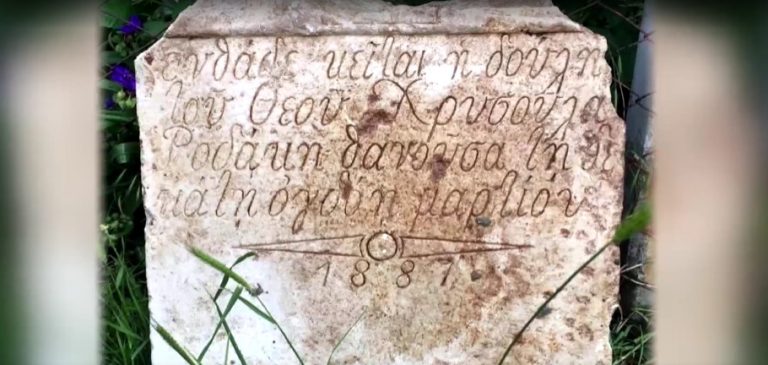 ενθάδε κεῖται ἡ δούλη
τοῦ Θεοῦ Χρυσούλα
Ῥοδάκη θανοῦσα τῇ δε
κάτη ὀγδόη μαρτίου
1887